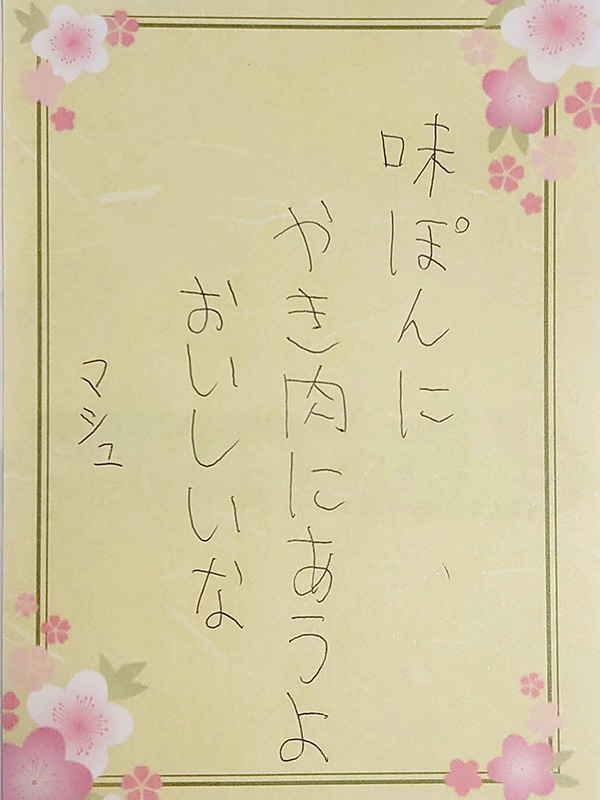 味ぽんに
やき肉にあうよ
おいしいな
マシュ